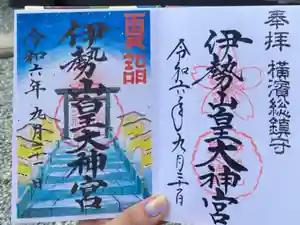 夏詣
伊勢山皇大神宮
令和六年九月三十日
奉拝 横濱総鎮守
伊勢山皇大神宮
令和六年九月三十日